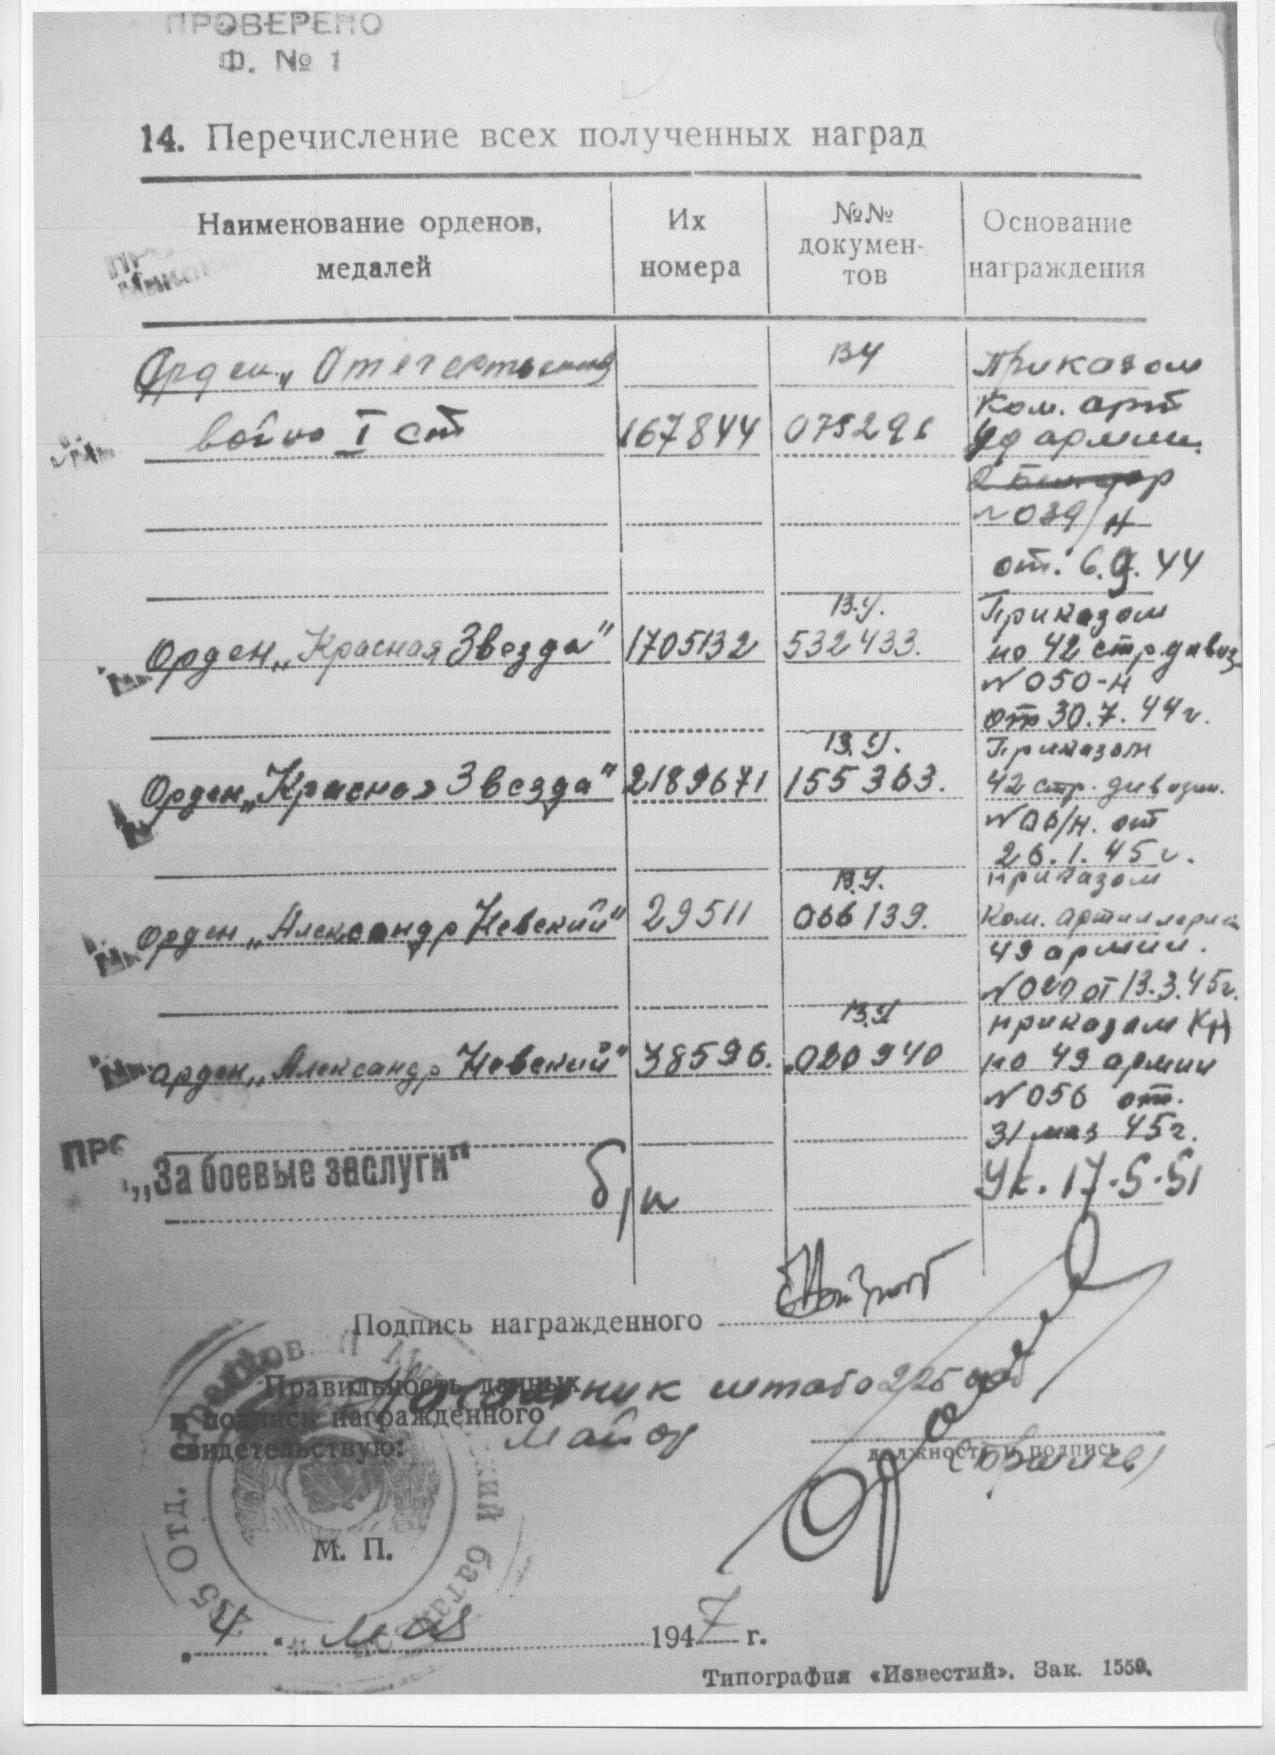 ПРОВЕРЕНО
Ф. № 1
14. Перечисление всех полученных наград
Наименование орденов, медалей
Их номера
№№ докумен-тов
Основание награждения
Орден „Отечественной
войны I ст
167844
ВУ
Приказом
Ком. арт
Уд армии
№ 039/н
от. 6.9.44
Орден „Красная Звезда"
1705132
В.У.
532433.
Приказом
по 42 стр. дивиз.
№ 050-н
от 30.7.44г.
Орден „Красная Звезда"
2189671
В.У.
155363.
Приказом
42 стр. дивизии.
от
26.1.45г.
Орден „Александр Невский"
29511
В.У.
066139.
приказом
Ком. артиллерией
49 армии.
от 13.3.45г.
Орден „Александр Невский"
38596.
В.У
080940
приказом
по 49 армии
№ 056 от.
31 мая 45г.
„За боевые заслуги"
б/н
Ук. 17-5-51
Подпись награжденного
Правильность данных
и подписи награжденного
свидетельствую:
Начальник штаба 225
майор
должность и подпись
М. П.
4 мая 1947 г.
Типография «Известий». Зак. 1559.